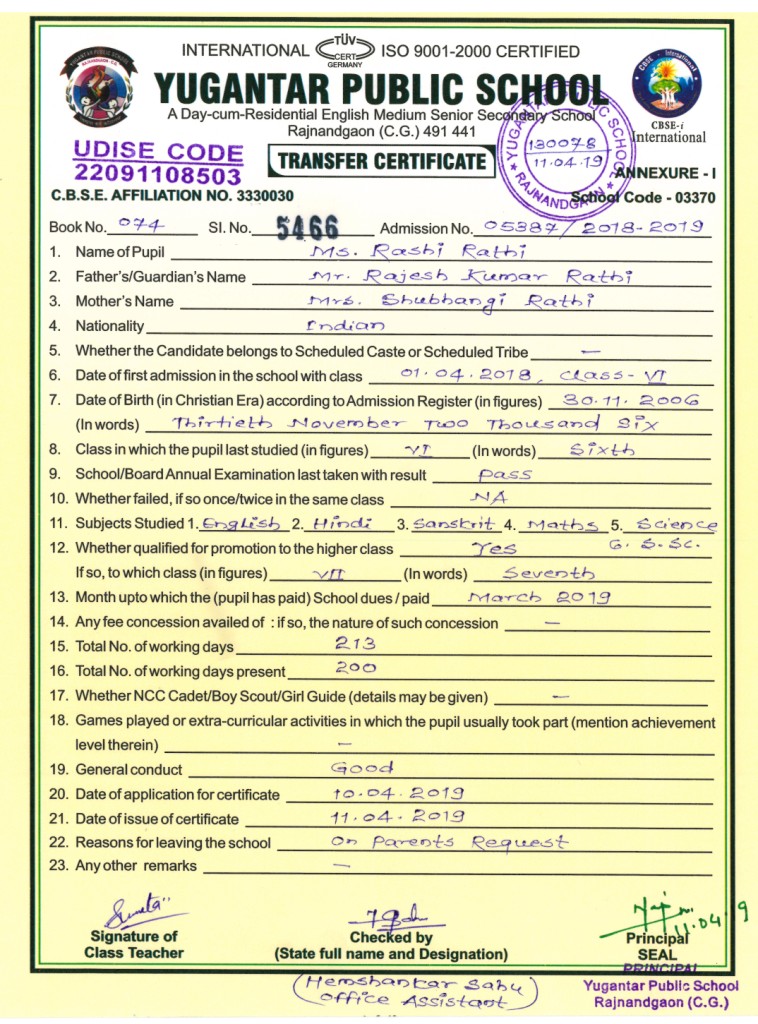 INTERNATIONAL TÜV CERT GERMANY ISO 9001-2000 CERTIFIED
YUGANTAR PUBLIC SCHOOL
A Day-cum-Residential English Medium Senior Secondary School
Rajnandgaon (C.G.) 491 441
CBSE-i
International
UDISE CODE
22091108503
TRANSFER CERTIFICATE
YUGANTAR PUBLIC SCHOOL
130078
11.04.19
RAJNANDGAON
ANNEXURE - I
C.B.S.E. AFFILIATION NO. 3330030 School Code - 03370
Book No. 074 Sl. No. 5466 Admission No. 05387/2018-2019
1. Name of Pupil Ms. Rashi Rathi
2. Father's/Guardian's Name Mr. Rajesh Kumar Rathi
3. Mother's Name Mrs. Shubhangi Rathi
4. Nationality Indian
5. Whether the Candidate belongs to Scheduled Caste or Scheduled Tribe —
6. Date of first admission in the school with class 01.04.2018, Class-VI
7. Date of Birth (in Christian Era) according to Admission Register (in figures) 30.11.2006
(In words) Thirtieth November Two Thousand Six
8. Class in which the pupil last studied (in figures) VI (In words) Sixth
9. School/Board Annual Examination last taken with result Pass
10. Whether failed, if so once/twice in the same class NA
11. Subjects Studied 1. English 2. Hindi 3. Sanskrit 4. Maths 5. Science
12. Whether qualified for promotion to the higher class Yes 6. S.Sc.
If so, to which class (in figures) VII (In words) Seventh
13. Month upto which the (pupil has paid) School dues / paid March 2019
14. Any fee concession availed of : if so, the nature of such concession —
15. Total No. of working days 213
16. Total No. of working days present 200
17. Whether NCC Cadet/Boy Scout/Girl Guide (details may be given) —
18. Games played or extra-curricular activities in which the pupil usually took part (mention achievement
level therein) —
19. General conduct Good
20. Date of application for certificate 10.04.2019
21. Date of issue of certificate 11.04.2019
22. Reasons for leaving the school On Parents Request
23. Any other remarks —
11.04.19
Signature of
Class Teacher
Checked by
(State full name and Designation)
Principal
SEAL
PRINCIPAL
(Hemshankar Sahu
Office Assistant)
Yugantar Public School
Rajnandgaon (C.G.)